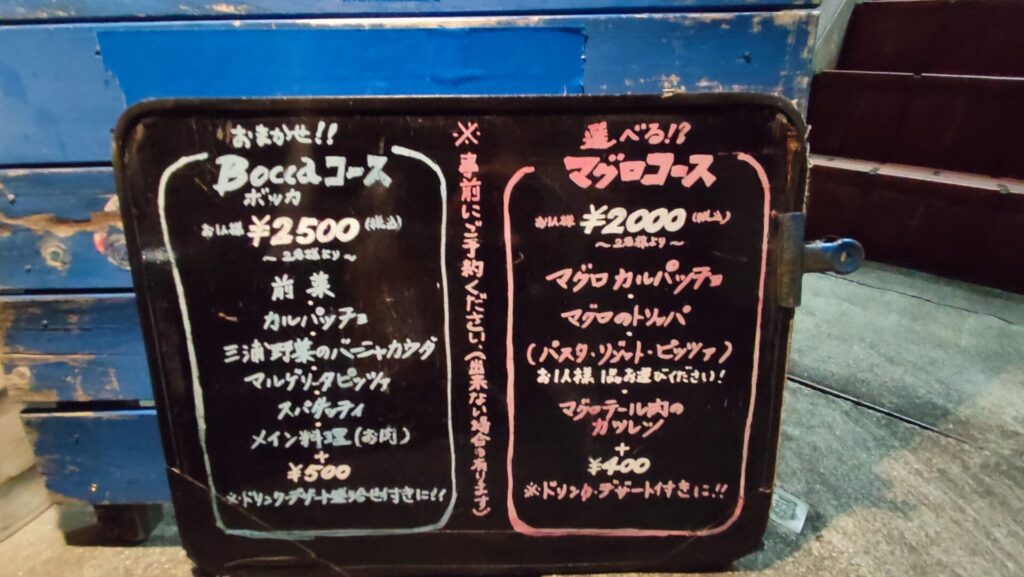 おまかせ!!
Boccaコース
ボッカ
お1人様 ¥2500 (税込)
～2名様より～
前菜
・
カルパッチョ
・
三浦野菜のバーニャカウダ
・
マルゲリータピッツァ
・
スパゲッティ
・
メイン料理(お肉)
+
¥500
※ドリンク・デザート盛り合せ付きに!!
※事前にご予約ください(出来ない場合も有ります)
選べる!?
マグロコース
お1人様 ¥2000 (税込)
～2名様より～
マグロカルパッチョ
・
マグロのトリッパ
・
(パスタ・リゾット・ピッツァ)
お1人様1品お選びください!
・
マグロテール肉の
カツレツ
+
¥400
※ドリンク・デザート付きに!!